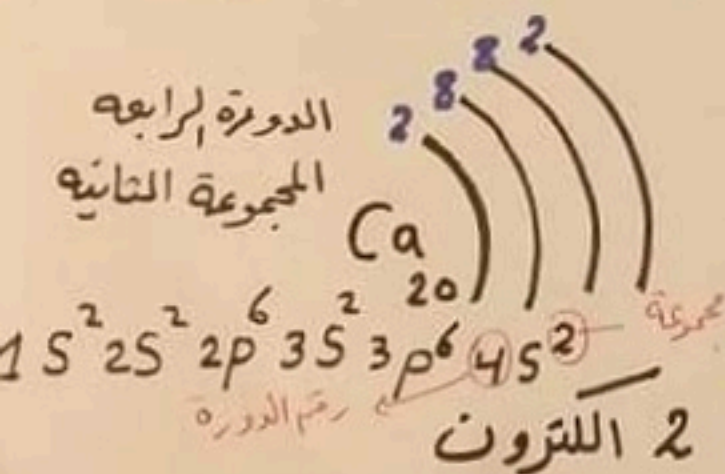 2 8 8 2
الدورة الرابعه
المجموعة الثانيه
Ca
20
1S² 2S² 2p⁶ 3S² 3p⁶ 4S²
مجموعة
رقم الدورة
2 الكترون